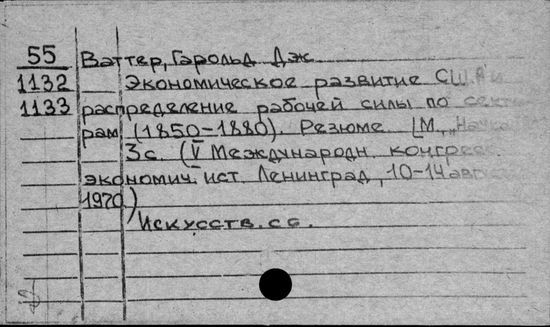 55 Ваттер, Гарольд Дж.
1132 Экономическое развитие США и
1133 распределение рабочей силы по секто-
рам (1850-1880). Резюме [М., „Наука
3с. (V Международн. конгресс
экономич. ист. Ленинград, 10-14 авгус
1970.)
Искусств. сс.